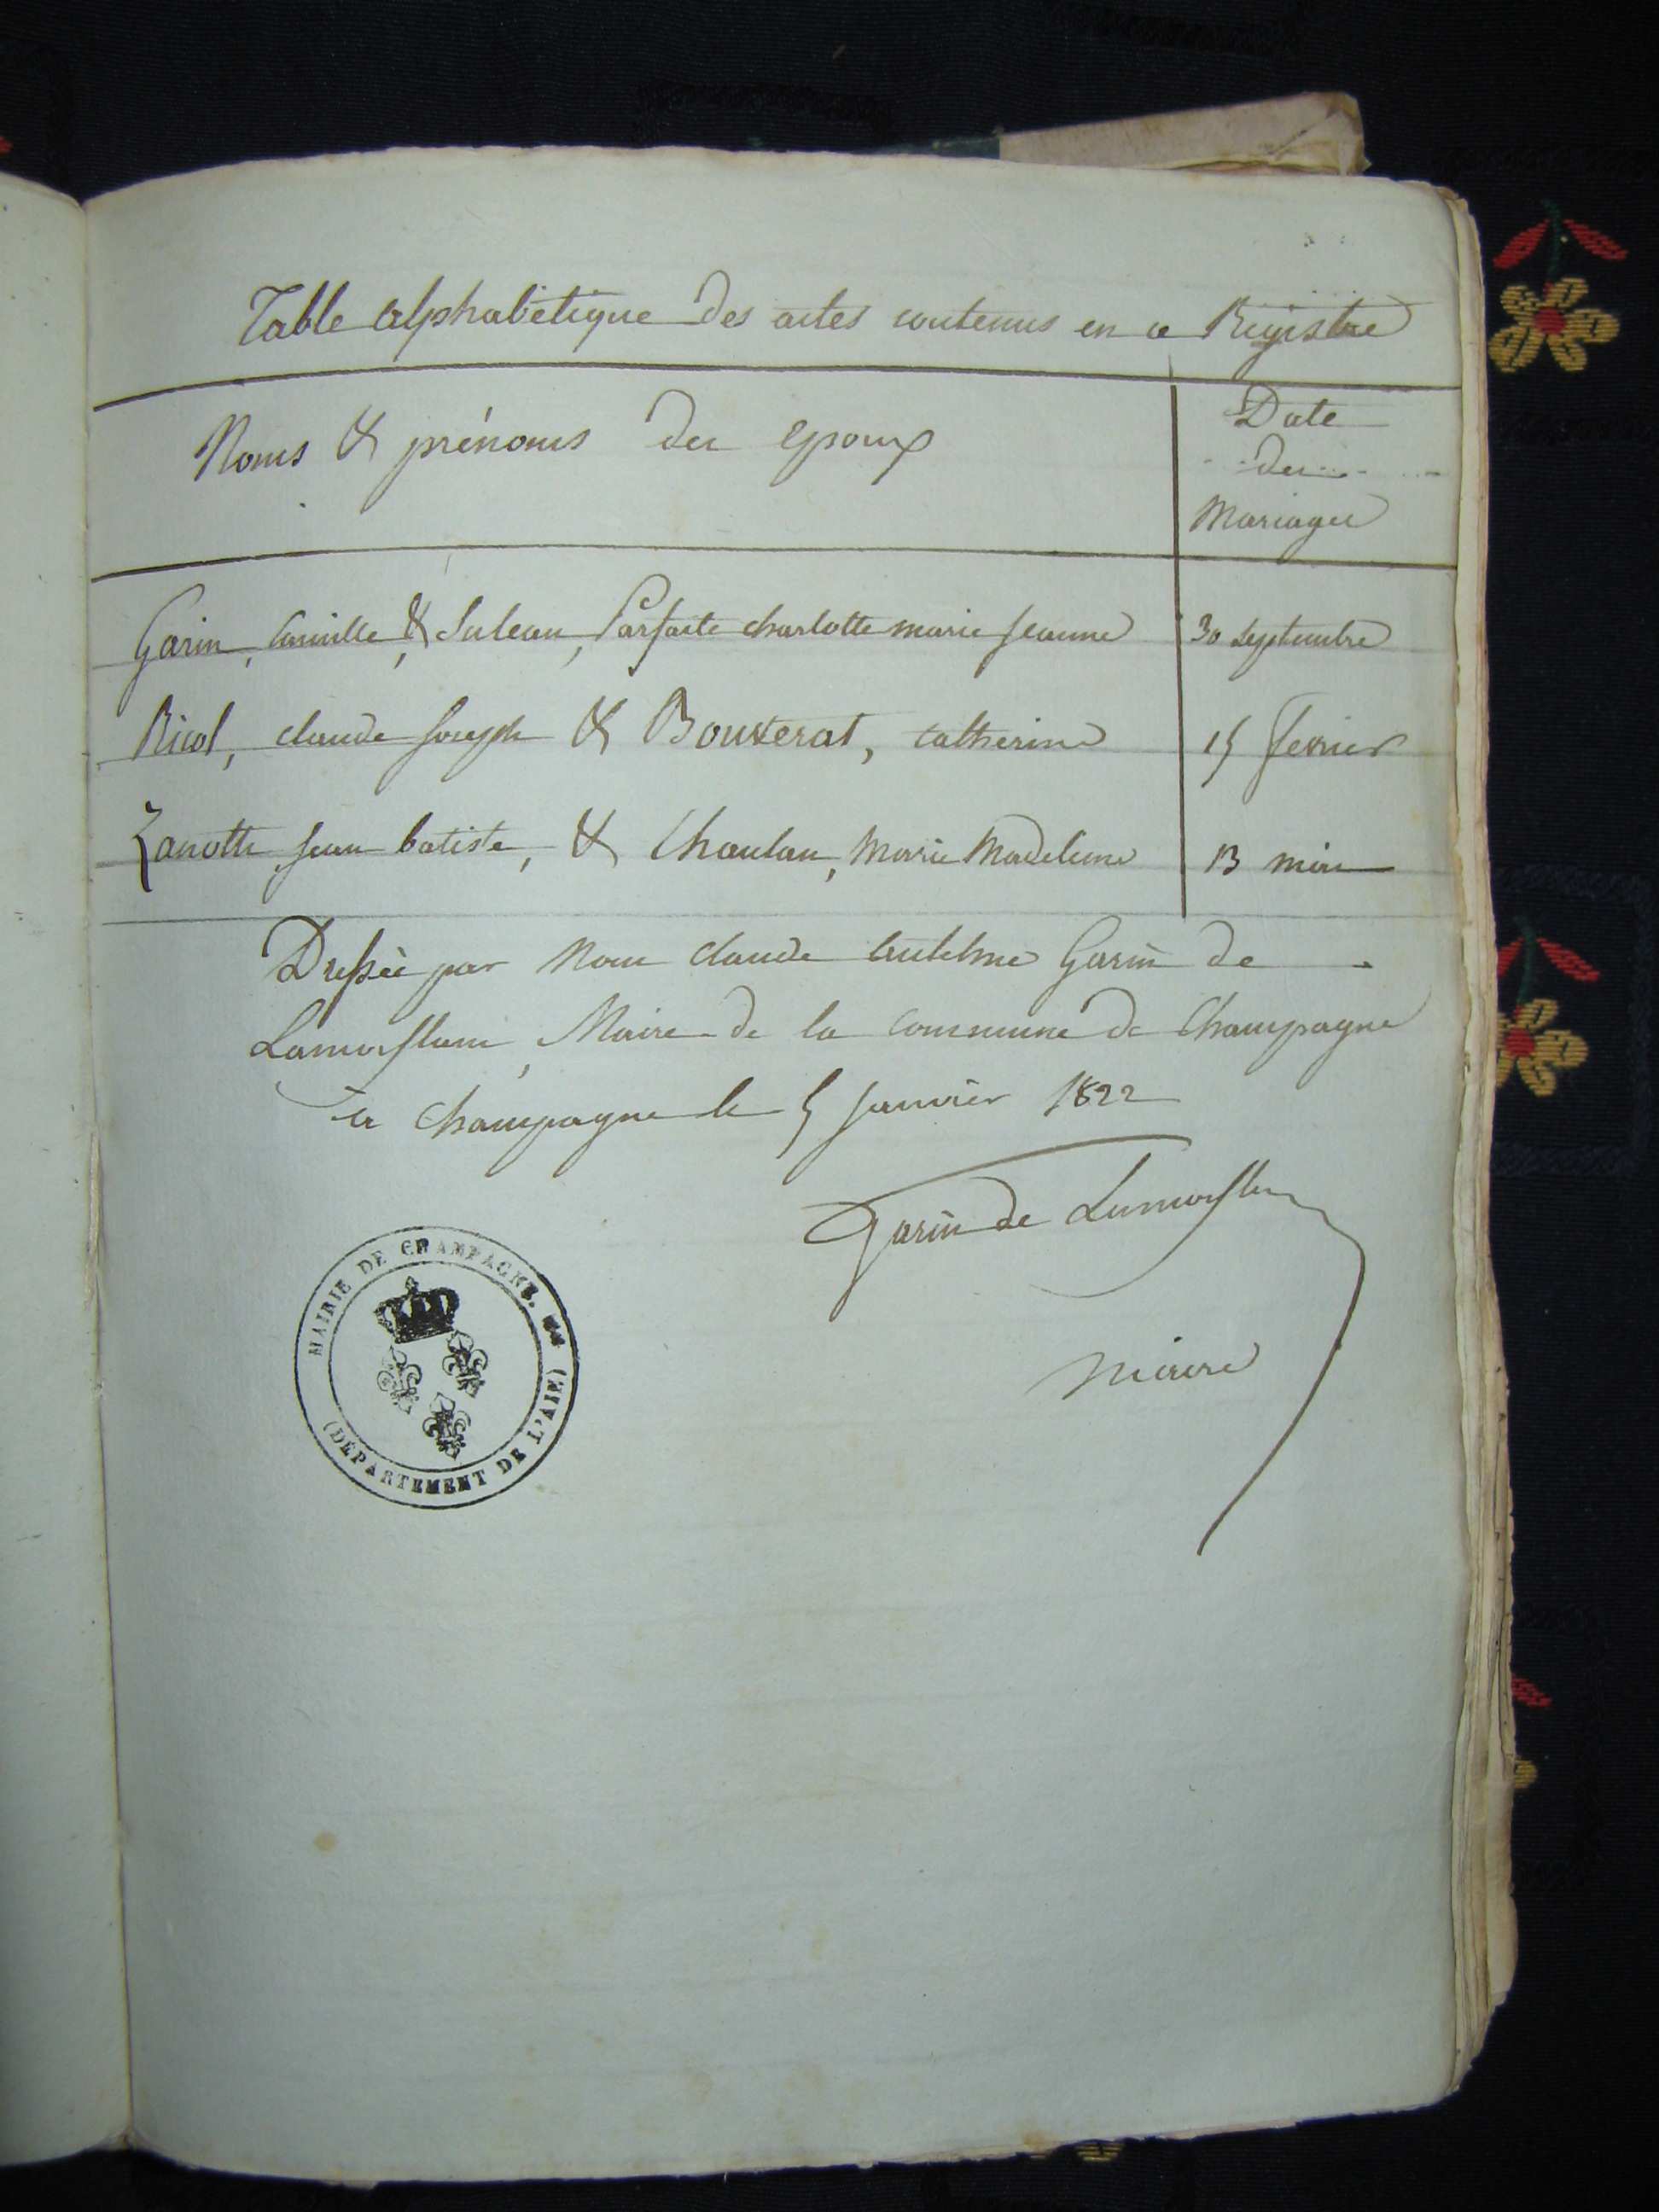 Table alphabétique des actes contenus en ce Registre
Noms & prénoms des epoux
Date
des
Mariages
Garin, Camille, & Suleau, Parfaite charlotte marie jeanne
30 septembre
Ricol, claude joseph & Bouverat, catherine
15 fevrier
Zanotti jean batiste, & Chaulan, Marie Madeleine
13 mai
Dressée par Nous claude anthelme Garin de
Lamorflan, Maire de la commune de Champagne
a Champagne le 5 janvier 1822
Garin de Lamorflan
Maire
MAIRIE DE CHAMPAGNE.
(DÉPARTEMENT DE L'AIN)